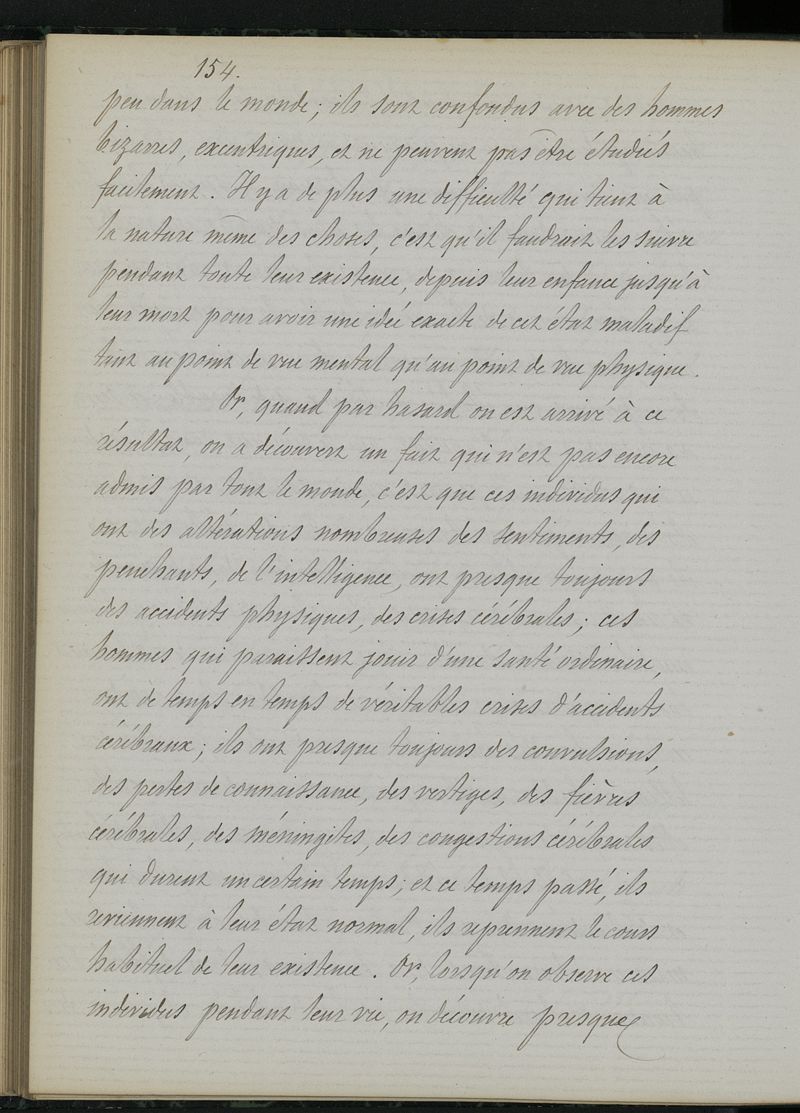 154.
peu dans le monde; ils sont confondus avec des hommes
bizarres, excentriques, et ne peuvent pas être étudiés
facilement. Il y a de plus une difficulté qui tient à
la nature même des choses, c'est qu'il faudrait les suivre
pendant toute leur existence, depuis leur enfance jusqu'à
leur mort pour avoir une idée exacte de cet état maladif
tant au point de vue mental qu'au point de vue physique.
Or, quand par hasard on est arrivé à ce
résultat, on a découvert un fait qui n'est pas encore
admis par tout le monde, c'est que ces individus qui
ont des altérations nombreuses des sentiments, des
penchants, de l'intelligence, ont presque toujours
des accidents physiques, des crises cérébrales; ces
hommes qui paraissent jouir d'une santé ordinaire,
ont de temps en temps de véritables crises d'accidents
cérébraux; ils ont presque toujours des convulsions,
des pertes de connaissance, des vertiges, des fièvres
cérébrales, des méningites, des congestions cérébrales
qui durent un certain temps; et ce temps passé, ils
reviennent à leur état normal, ils reprennent le cours
habituel de leur existence. Or, lorsqu'on observe ces
individus pendant leur vie, on découvre presque